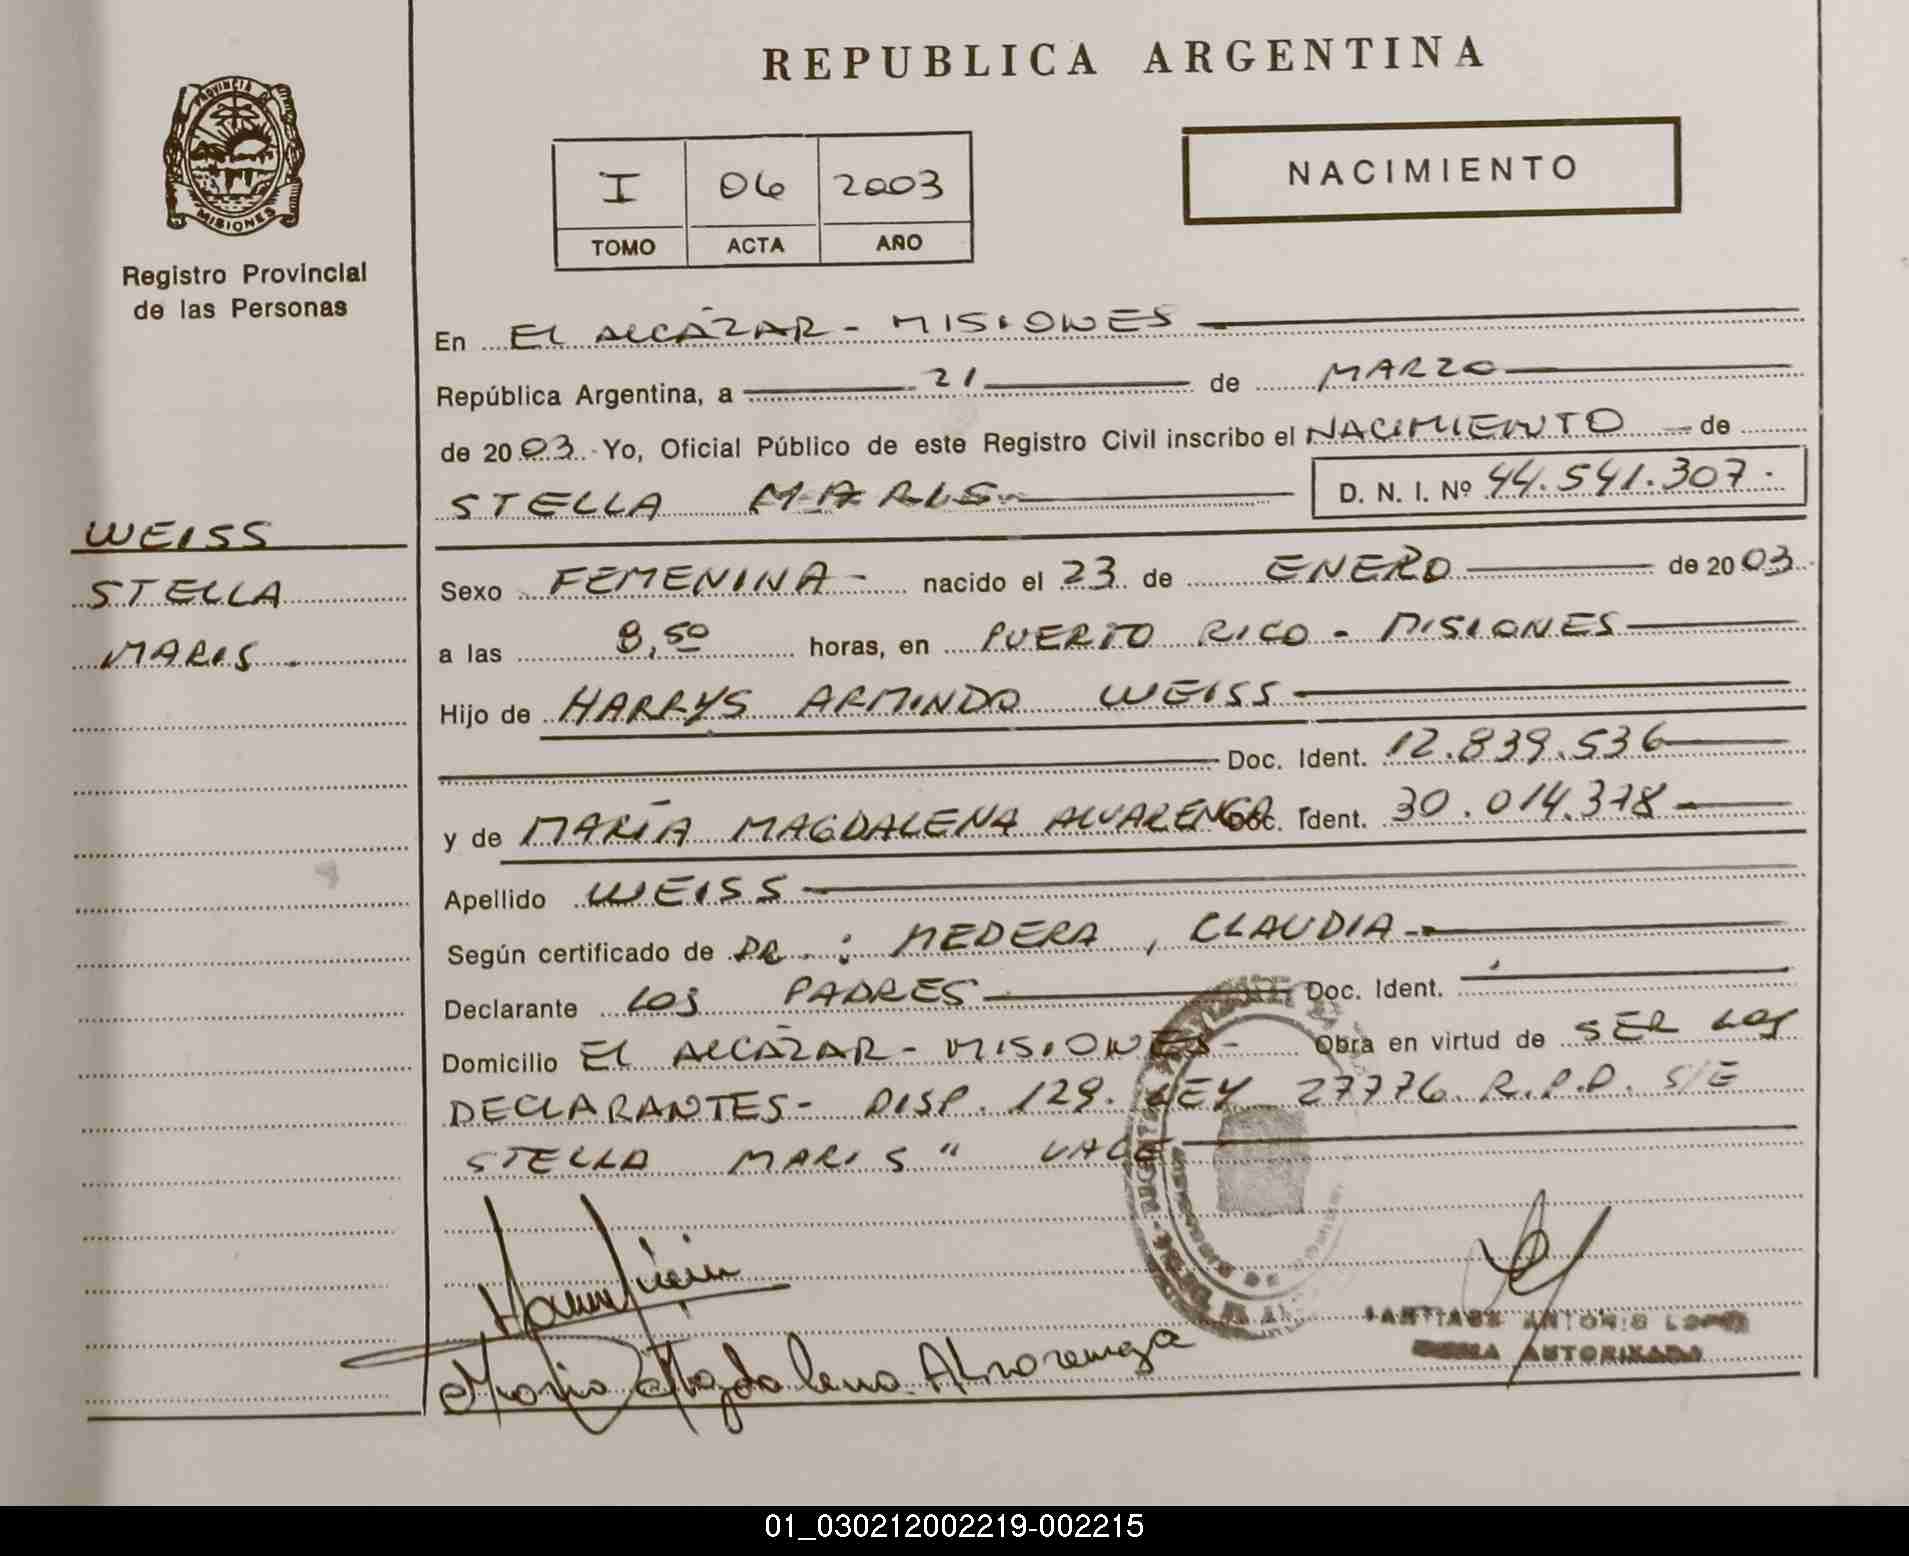 REPUBLICA ARGENTINA
PROVINCIA DE
MISIONES
Registro Provincial
de las Personas
I 06 2003
TOMO ACTA AÑO
NACIMIENTO
En EL ALCÁZAR - MISIONES
República Argentina, a 21 de MARZO
de 2003 Yo, Oficial Público de este Registro Civil inscribo el NACIMIENTO de
STELLA MARIS D. N. I. Nº 44.541.307.
WEISS
STELLA
MARIS.
Sexo FEMENINA - nacido el 23 de ENERO de 2003
a las 8,50 horas, en PUERTO RICO - MISIONES
Hijo de HARRYS ARMINDO WEISS
Doc. Ident. 12.839.536
y de MARÍA MAGDALENA ALVARENGA Doc. Ident. 30.014.378
Apellido WEISS
Según certificado de DR. : MEDERA, CLAUDIA
Declarante LOS PADRES Doc. Ident.
Domicilio EL ALCÁZAR - MISIONES - Obra en virtud de SER LOS
DECLARANTES - DISP. 129. LEY 27776. R.P.P. S/E
STELLA MARIS" VALE
Maria Magdalena Alvarenga
SANTIAGO ANTONIO LOPEZ
AUTORIZADA
01_030212002219-002215